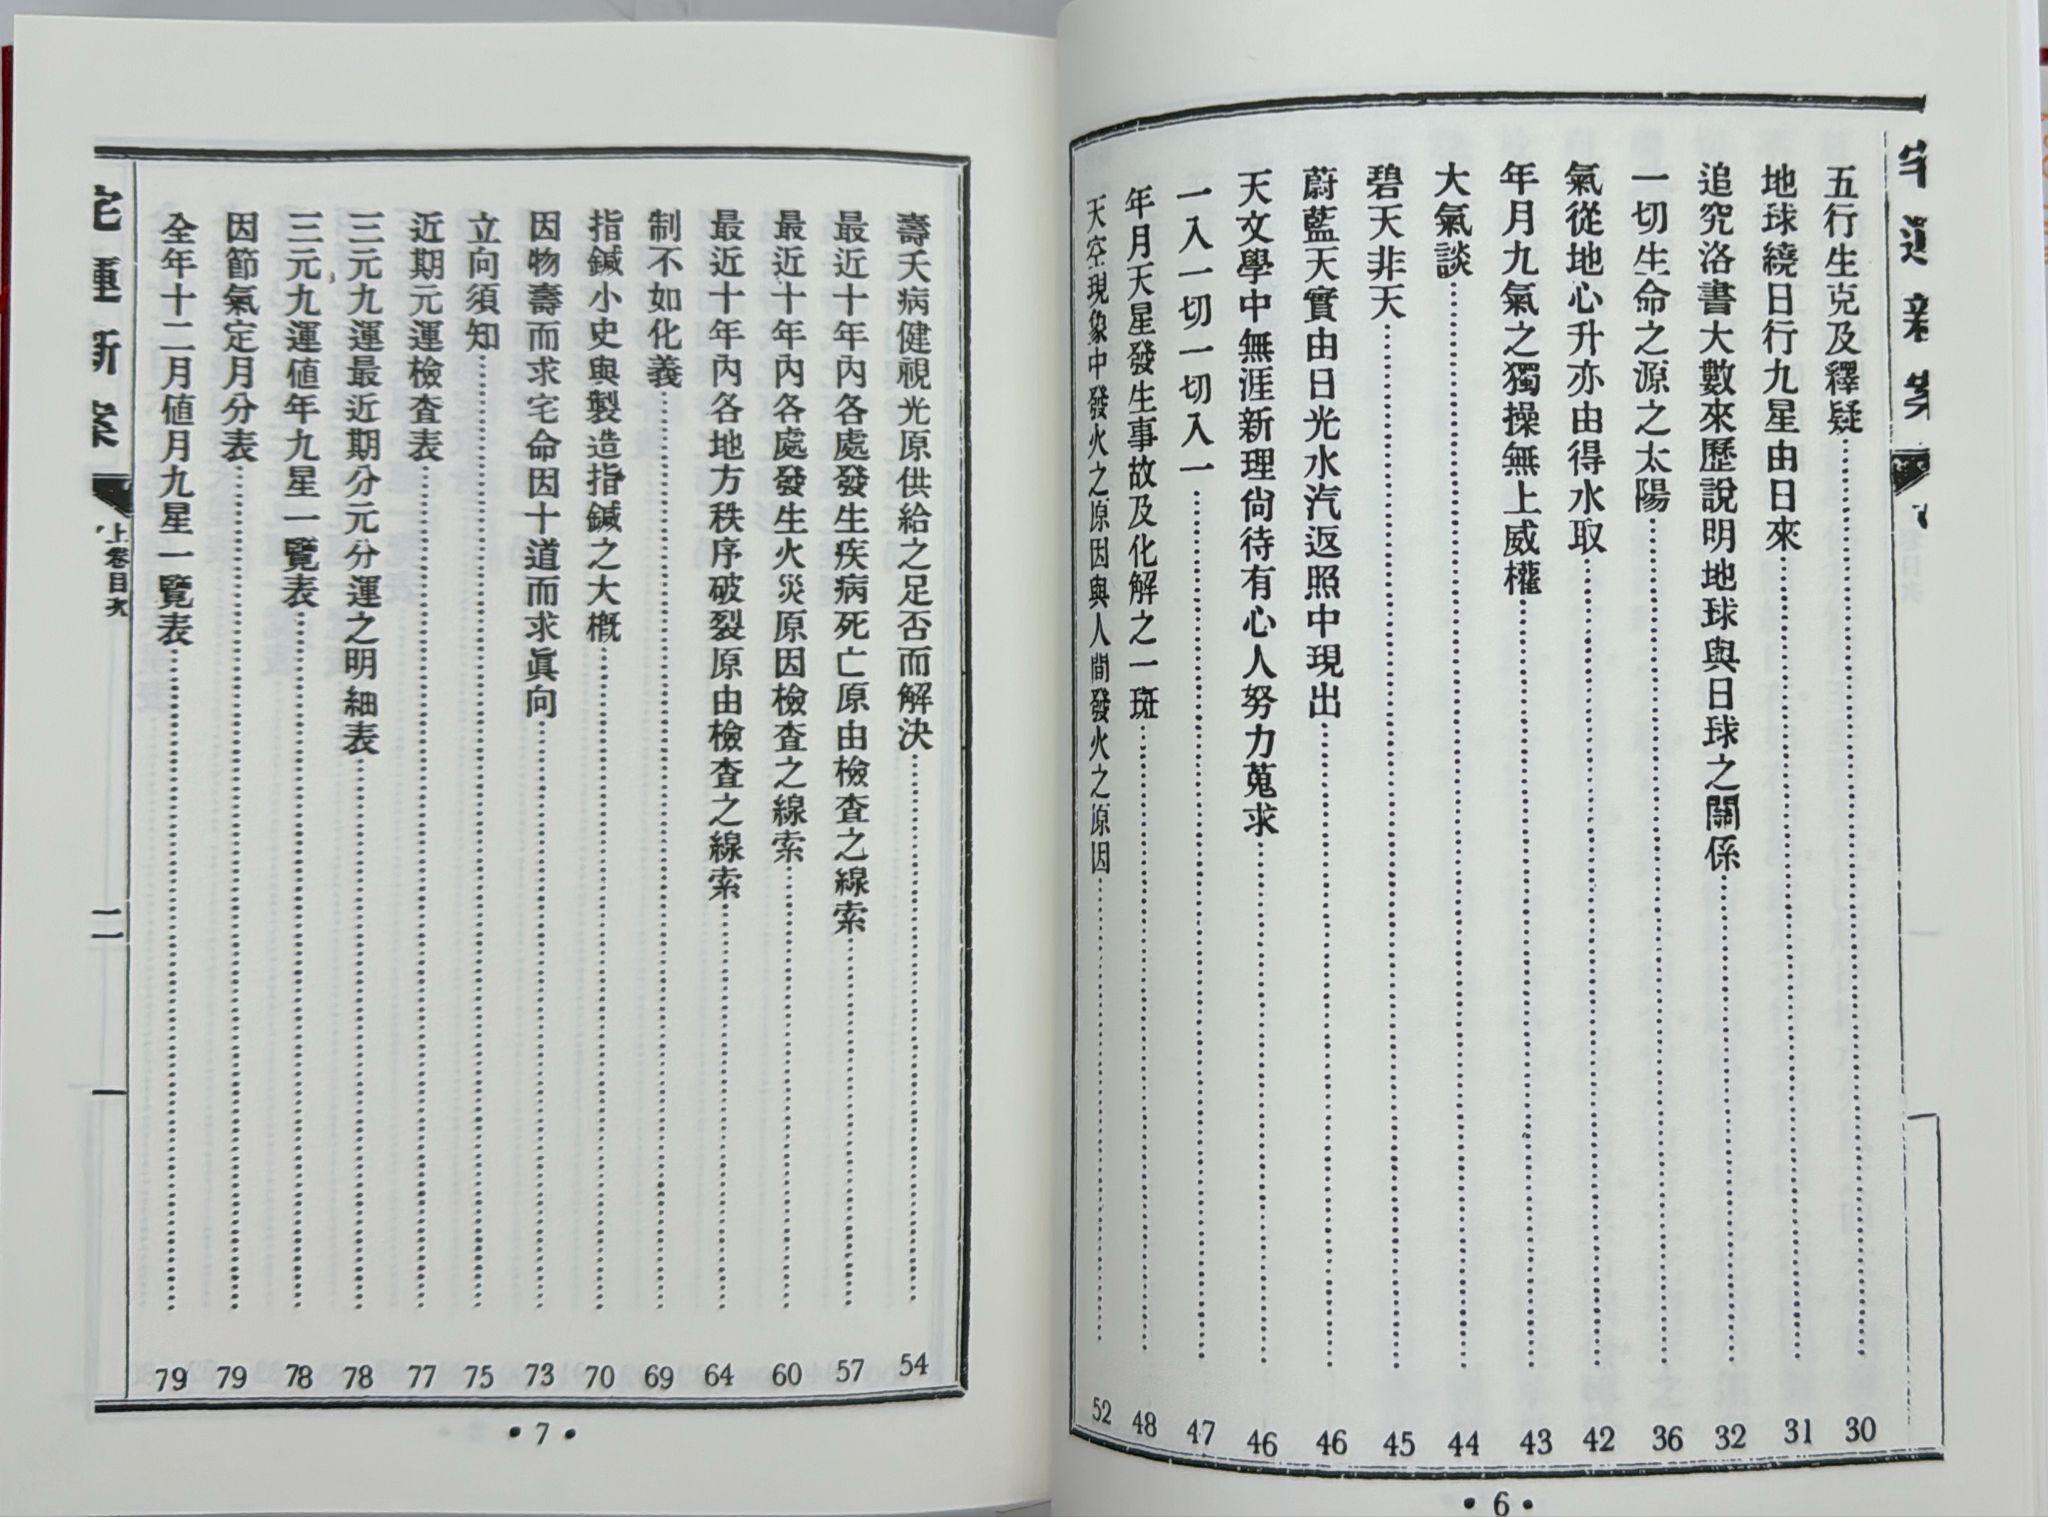 宅運新案
五行生克及釋疑……30
地球繞日行九星由日來……31
追究洛書大數來歷說明地球與日球之關係……32
一切生命之源之太陽……36
氣從地心升亦由得水取……42
年月九氣之獨操無上威權……43
大氣談……44
碧天非天……45
蔚藍天實由日光水汽返照中現出……46
天文學中無涯新理尙待有心人努力蒐求……46
一入一切一切入一……47
年月天星發生事故及化解之一斑……48
天空現象中發火之原因與人間發火之原因……52
•6•
壽夭病健視光原供給之足否而解決……54
最近十年內各處發生疾病死亡原由檢查之線索……57
最近十年內各處發生火災原因檢查之線索……60
最近十年內各地方秩序破裂原由檢查之線索……64
制不如化義……69
指鍼小史與製造指鍼之大槪……70
因物壽而求宅命因十道而求眞向……73
立向須知……75
近期元運檢查表……77
三元九運最近期分元分運之明細表……78
三元九運値年九星一覽表……78
因節氣定月分表……79
全年十二月値月九星一覽表……79
宅運新案
上卷目次
二
•7•